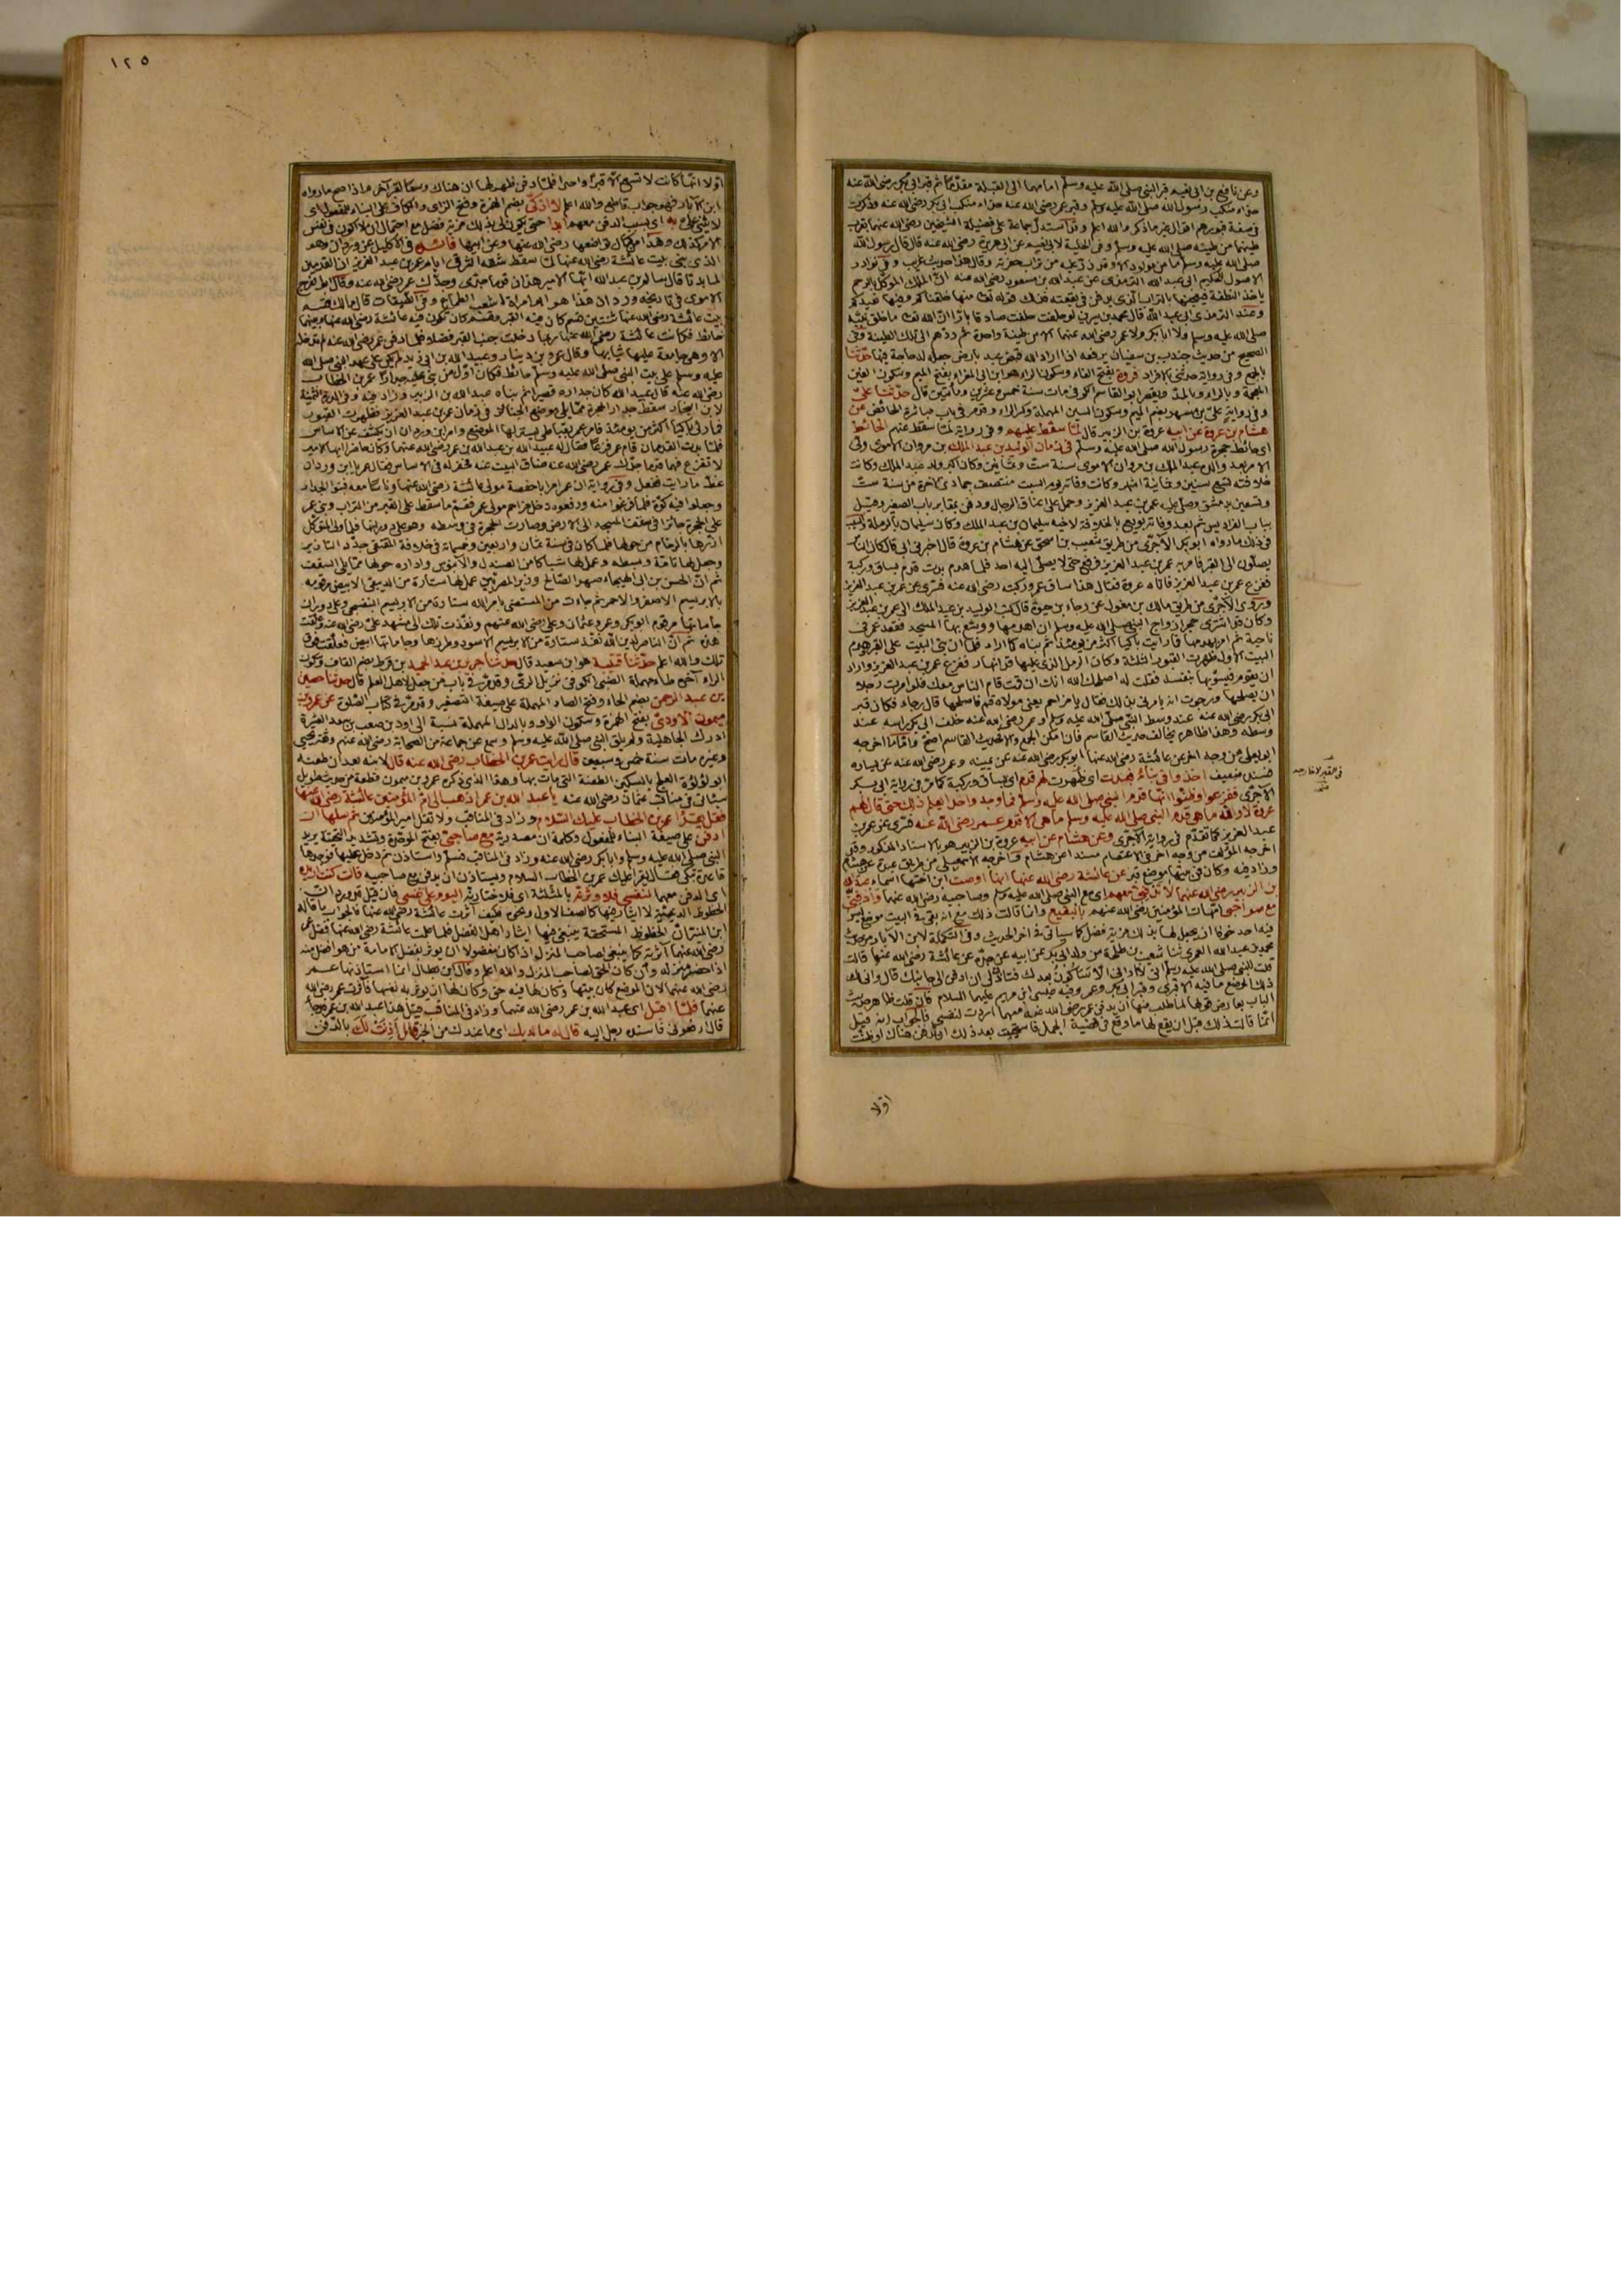 وعن نافع بن ابى نعيم قبر النبى صلى الله عليه وسلم امامهما الى القبلة مقدما ثم قبر ابى بكر رضى الله عنه
حذاء منكب رسول الله صلى الله عليه وسلم وقبر عمر رضى الله عنه حذاء منكب ابى بكر رضى الله عنه
فى صفة قبورهم اقوال غير ما ذكر والله اعلم وقد استدل جماعة على فضيلة الشيخين رضى الله عنهما بقرب
طينهما من طينته صلى الله عليه وسلم وفى الحلية لابى نعيم عن ابى هريرة رضى الله عنه قال قال رسول الله
صلى الله عليه وسلم ما من مولود الا وقد ذر عليه من تراب حفرته وقال هذا حديث غريب وفى نوادر
الاصول للحكيم ابى عبد الله الترمذى عن عبد الله بن مسعود رضى الله عنه ان الملك الموكل بالرحم
ياخذ النطفة فيعجنها بالتراب الذى يدفن فى بقعته فذلك قوله تعالى منها خلقناكم وفيها نعيدكم
وعند الترمذى ابى عبد الله قال محمد بن سيرين لو حلفت حلفت صادقا بارا ان الله تعالى ما خلق نبيه
صلى الله عليه وسلم ولا ابا بكر ولا عمر رضى الله عنهما الا من طينة واحدة ثم ردهم الى تلك الطينة وفى
الصحيح من حديث جندب بن سفيان يرفعه اذا اراد الله قبض عبد بارض جعل له حاجة فيها حدثنا
بالجمع وفى رواية حدثنى بالافراد فروة بفتح الفاء وسكون الراء هو ابن ابى المغراء بفتح الميم وسكون الغين
المعجمة وبالراء وبالمد ويقصر ابو القاسم الكوفى مات سنة خمس وعشرين ومأتين قال حدثنا على
وفى رواية على بن مسهر بضم الميم وسكون السين المهملة وكسر الراء وقد مر فى باب مباشرة الحائض عن
هشام بن عروة عن ابيه عروة بن الزبير قال لما سقط عليهم وفى رواية لما سقط عنهم الحائط
اى حائط حجرة رسول الله صلى الله عليه وسلم فى زمان الوليد بن عبد الملك بن مروان الاموى ولى
الامر بعد والده عبد الملك بن مروان الاموى سنة ست وثمانين وكان اكبر ولد عبد الملك وكانت
خلافته تسع سنين وثمانية اشهر وكانت وفاته يوم السبت منتصف جمادى الاخرة من سنة ست
وتسعين بدمشق وصلى عليه عمر بن عبد العزيز وحمل على اعناق الرجال ودفن بمقابر باب الصغير وقيل
بباب الفراديس ثم بعد وفاته بويع بالخلافة لاخيه سليمان بن عبد الملك وكان سليمان بالرملة والسبب
فى ذلك ما رواه ابو بكر الآجرى من طريق شعيب بن اسحق عن هشام بن عروة قال اخبرنى ابى قال كان الناس
يصلون الى القبر فامر به عمر بن عبد العزيز فرفع حتى لا يصلى اليه احد فلما هدم بدت قدم بساق وركبة
ففزع عمر بن عبد العزيز فاتاه عروة فقال هذا ساق عمر وركبته رضى الله عنه فسرى عن عمر بن عبد العزيز
وروى الآجرى من طريق مالك بن مغول عن رجاء بن حيوة قال كتب الوليد بن عبد الملك الى عمر بن عبد العزيز
وكان قد اشترى حجر ازواج النبى صلى الله عليه وسلم ان اهدمها ووسع بها المسجد فقعد عمر فى
ناحية ثم امر بهدمها فما رايت باكيا اكثر من يومئذ ثم بناه كما اراد فلما ان بنى البيت على القبر وهدم
البيت الاول ظهرت القبور الثلثة وكان الرمل الذى عليها قد انهار ففزع عمر بن عبد العزيز واراد
ان يقوم فيسويها بنفسه فقلت له اصلحك الله انك ان قمت قام الناس معك فلو امرت رجلا
ان يصلحها ورجوت انه يامرنى بذلك فقال يا مزاحم يعنى مولاه قم فاصلحها قال رجاء فكان قبر
ابى بكر رضى الله عنه عند وسط النبى صلى الله عليه وسلم وعمر رضى الله عنه خلف ابى بكر راسه عند
وسطه وهذا ظاهره يخالف حديث القاسم فان امكن الجمع والا فحديث القاسم اصح واما ما اخرجه
ابو يعلى من وجه اخر عن عائشة رضى الله عنها ابو بكر رضى الله عنه عن يمينه وعمر رضى الله عنه عن يساره
فسنده ضعيف اخذوا فى بنائه فبدت اى ظهرت لهم قدم اى بساق وركبة كما مر فى رواية ابى بكر
الآجرى ففزعوا وظنوا انها قدم النبى صلى الله عليه وسلم فما وجد واحد يعلم ذلك حتى قال لهم
عروة لا والله ما هى قدم النبى صلى الله عليه وسلم ما هى الا قدم عمر رضى الله عنه فسرى عن عمر بن
عبد العزيز كما تقدم فى رواية الآجرى وعن هشام عن ابيه عروة بن الزبير هو بالاسناد المذكور وقد
اخرجه المؤلف من وجه اخر فى الاعتصام مسندا عن هشام واخرجه الاسمعيلى من طريق عبدة عن هشام
وزاد فيه وكان فى بيتها موضع قبر عن عائشة رضى الله عنها انها اوصت ابن اختها اسماء عبد الله
بن الزبير رضى الله عنهما لا تدفنى معهم اى مع النبى صلى الله عليه وسلم وصاحبيه رضى الله عنهما وادفنى
مع صواحبى امهات المؤمنين رضى الله عنهم بالبقيع وانما قالت ذلك مع انه بقى فى البيت موضع ليس
فيه احد خوفا ان يجعل لها بذلك مزية فضل كما سياتى فى اخر الحديث وفى التكملة لابن الابار من حديث
محمد بن عبد الله العمرى ثنا شعيب بن طلحة من ولد ابى بكر عن ابيه عن جده عن عائشة رضى الله عنها قالت
قلت للنبى صلى الله عليه وسلم انى لا ارانى الا ساكون بعدك فتاذن لى ان ادفن الى جانبك قال وانى لك
ذلك الموضع ما فيه الا قبرى وقبر ابى بكر وعمر وفيه عيسى بن مريم عليهما السلام فان قلت ظاهر حديث
الباب يعارض قولها لما طلب منها ان يدفن عمر رضى الله عنه معهما اردت لنفسى فالجواب انه قيل
انما قالت ذلك قبل ان يقع لها ما وقع فى قضية الجمل فاستحيت بعد ذلك ان تدفن هناك او ظنت
فى القبر لا خارجه
اولا
١٢٥
اولا انها كانت لا تسع الا قبرا واحدا فلما دفن ظهر لها ان هناك وسعا لقبر آخر واذا صح ما رواه
ابن الابار فهو جواب قاطع والله اعلم لا ازكى بضم الهمزة وفتح الزاى والكاف على البناء للمفعول اى
لا يثنى على به اى بسبب الدفن معهم ابدا حتى يكون لى بذلك مزية فضل مع احتمال ان لا اكون فى نفس
الامر كذلك وهذا من كمال تواضعها رضى الله عنها وعن ابيها فائدة فى الاكليل عن وردان وهو
الذى بنى بيت عائشة رضى الله عنها لما سقط شقه الشرقى ايام عمر بن عبد العزيز ان القدمين
لما بدتا قال سالم بن عبد الله ايها الامير هذان قدما جدى وجدك عمر رضى الله عنه وقال ابو الفرج
الاموى فى تاريخه وردان هذا هو ابو امراة اشعب الطماع وفى الطبقات قال مالك قسم
بيت عائشة رضى الله عنها ثنتين قسم كان فيه القبر وقسم كان تكون فيه عائشة رضى الله عنها وبينهما
حائط فكانت عائشة رضى الله عنها ربما دخلت جنب القبر فضلا فلما دفن عمر رضى الله عنه لم تدخله
الا وهى جامعة عليها ثيابها وقال عمرو بن دينار وعبيد الله بن ابى يزيد لم يكن على عهد النبى صلى الله
عليه وسلم على بيت النبى صلى الله عليه وسلم حائط فكان اول من بنى عليه جدارا عمر بن الخطاب
رضى الله عنه قال عبيد الله كان جداره قصيرا ثم بناه عبد الله بن الزبير وزاد فيه وفى الدرة الثمينة
لابن النجار سقط جدار الحجرة مما يلى موضع الجنائز فى زمان عمر بن عبد العزيز فظهرت القبور
فما رئى باكيا اكثر من يومئذ فامر عمر بقباطى يستر بها الموضع وامر ابن وردان ان يكشف عن الاساس
فلما بدت القدمان قام عمر فزعا فقال له عبيد الله بن عبد الله بن عمر رضى الله عنهما وكان حاضرا ايها الامير
لا تفزع فهما قدما جدك عمر رضى الله عنه ضاق البيت عنه فحفر له فى الاساس فقال عمر يا ابن وردان
غط ما رايت ففعل وفى رواية ان عمر امر ابا حفصة مولى عائشة رضى الله عنها وناسا معه فبنوا الجدار
وجعلوا فيه كوة فلما فرغوا منه ورفعوه دخل مزاحم مولى عمر فقم ما سقط على القبر من التراب وبنى عمر
على الحجرة حائزا فى سقف المسجد الى الارض وصارت الحجرة فى وسطه وهو على دورانها فلما ولى المتوكل
ازرها بالرخام من حولها فلما كان فى سنة ثمان واربعين وخمسمائة فى خلافة المقتفى جدد التازير
وجعل لها قامة وبسطه وعمل لها شباكا من الصندل والآبنوس واداره حولها مما يلى السقف
ثم ان الحسن بن ابى الهيجاء صهر الصالح وزير المصريين عمل لها ستارة من الديبقى الابيض مرقومة
بالابريسم الاصفر والاحمر ثم جاءت من المستضئ بامر الله ستارة من الابريسم البنفسجى وعلى دوران
جاماتها مرقوم ابو بكر وعمر وعثمان وعلى رضى الله عنهم ونفذت تلك الى مشهد على رضى الله عنه وعلقت
هذه ثم ان الناصر لدين الله نفذ ستارة من الابريسم الاسود وطرزها وجاماتها ابيض فعلقت فوق
تلك والله اعلم حدثنا قتيبة هو ابن سعيد قال حدثنا جرير بن عبد الحميد بن قرط بضم القاف وسكون
الراء آخره طاء مهملة الضبى الكوفى نزيل الرى وقد مر فى باب من جعل لاهل العلم قال حدثنا حصين
بن عبد الرحمن بضم الحاء وفتح الصاد المهملة على صيغة التصغير وقد مر فى كتاب الصلوة عن عمرو بن
ميمون الاودى بفتح الهمزة وسكون الواو وبالدال المهملة نسبة الى اود بن صعب بن سعد العشيرة
ادرك الجاهلية ولم يلق النبى صلى الله عليه وسلم وسمع عن جماعة من الصحابة رضى الله عنهم
وغيره مات سنة خمس وسبعين قال رايت عمر بن الخطاب رضى الله عنه قال لابنه بعد ان طعنه
ابو لؤلؤة العلج بالسكين الطعنة التى مات بها وهذا الذى ذكره عمرو بن ميمون قطعة من حديث طويل
سيأتى فى مناقب عثمان رضى الله عنه يا عبد الله بن عمر اذهب الى ام المؤمنين عائشة رضى الله عنها
فقل يقرأ عمر بن الخطاب عليك السلام وزاد فى المناقب ولا تقل امير المؤمنين ثم سلها ان
ادفن على صيغة البناء للمفعول وكلمة ان مصدرية مع صاحبى بفتح الموحدة وتشديد التحتية يريد
النبى صلى الله عليه وسلم وابا بكر رضى الله عنه وزاد فى المناقب فسلم واستاذن ثم دخل عليها فوجدها
قاعدة تبكى فقال يقرأ عليك عمر بن الخطاب السلام ويستاذن ان يدفن مع صاحبيه قالت كنت اريده
اى الدفن معهما لنفسى فلاوثرنه بالمثلثة اى فلاختارنه اليوم على نفسى فان قيل قد ورد ان
الحظوظ الدينية لا ايثار فيها كالصف الاول ونحوه فكيف آثرت عائشة رضى الله عنها فالجواب ما قاله
ابن المنير ان الحظوظ المستحقة ينبغى فيها ايثار اهل الفضل فلما علمت عائشة رضى الله عنها فضل عمر
رضى الله عنهما آثرته كما ينبغى لصاحب المنزل اذا كان مفضولا ان يوثر بفضل الامامة من هو افضل منه
اذا حضر منزله وان كان الحق لصاحب المنزل والله اعلم وقال ابن بطال انما استاذنها عمر
رضى الله عنهما لان الموضع كان بيتها وكان لها فيه حق وكان لها ان توثر به نفسها فآثرت عمر رضى الله
عنهما فلما اقبل اى عبد الله بن عمر رضى الله عنهما وزاد فى المناقب قيل هذا عبد الله بن عمر قد جاء
قال ارفعونى فاسنده رجل اليه قال له ما لديك اى ما عندك من الخبر قال اذنت لك بالدفن